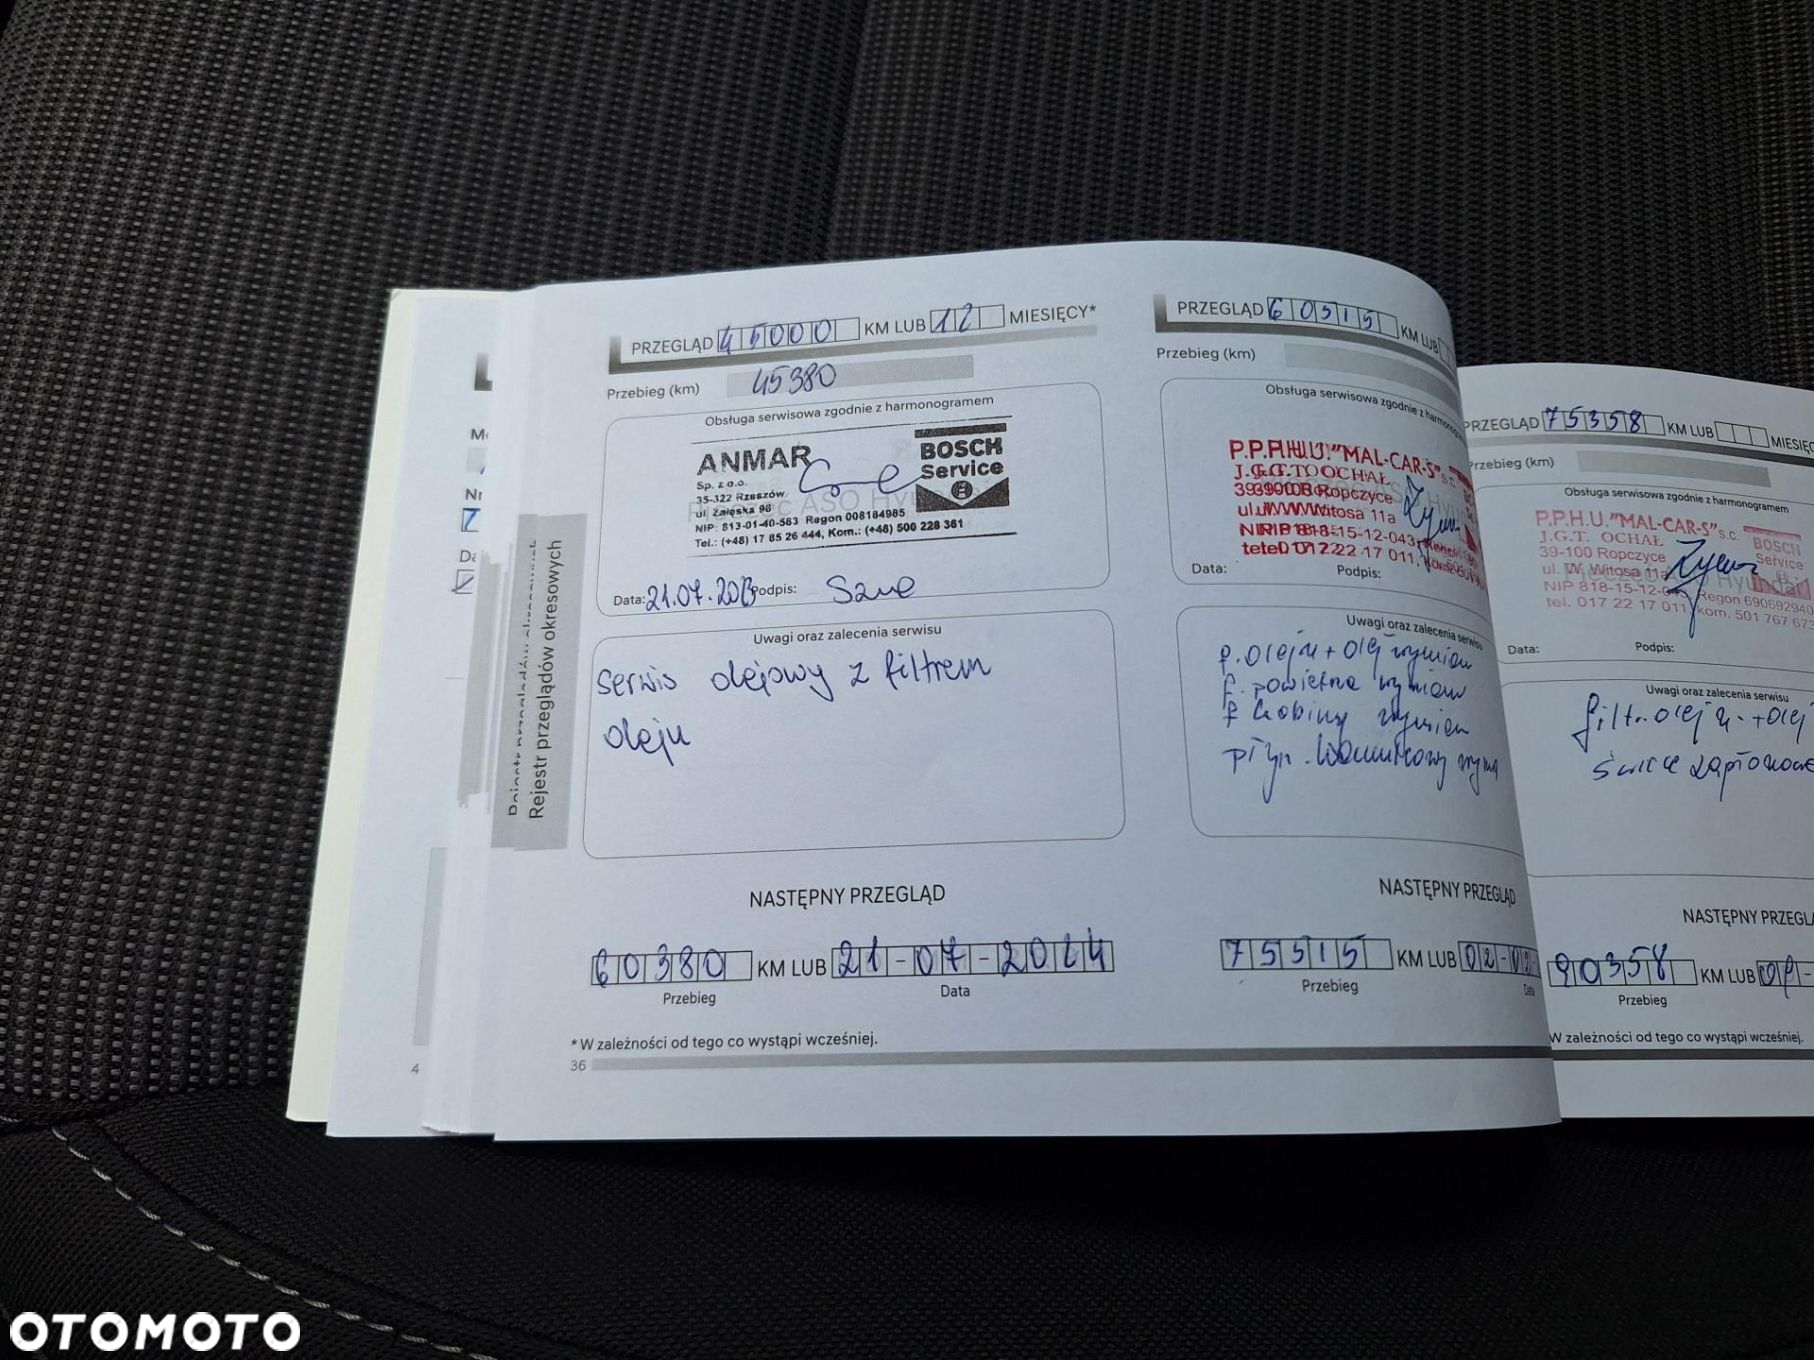 PRZEGLĄD 45000 KM LUB 12 MIESIĘCY*
Przebieg (km) 45380
Obsługa serwisowa zgodnie z harmonogramem
ANMAR
Sp. z o.o.
35-322 Rzeszów
ul. Załęska 98
NIP: 813-01-40-583 Regon 008184985
Tel.: (+48) 17 85 26 444, Kom.: (+48) 500 228 361
BOSCH
Service
Data: 21.07.2023 Podpis:
Uwagi oraz zalecenia serwisu
serwis olejowy z filtrem
oleju
NASTĘPNY PRZEGLĄD
60380 KM LUB 21-07-2024
Przebieg Data
* W zależności od tego co wystąpi wcześniej.
36
Rejestr przeglądów okresowych
4
PRZEGLĄD 60515 KM LUB
Przebieg (km)
Obsługa serwisowa zgodnie z
P.P.H.U. "MAL-CAR-S" s.c.
J.G.T. OCHAŁ
39-100 Ropczyce
ul. W. Witosa 11a
NIP 818-15-12-043
tel. 017 22 17 011
Data: Podpis:
Uwagi oraz zalecenia serwisu
f. oleju + olej wymiana
f. powietrza wymiana
f kabiny wymiana
płyn hamulcowy
NASTĘPNY PRZEGLĄD
75515 KM LUB 02-
Przebieg Data
PRZEGLĄD 75358 KM LUB MIESIĘC
Przebieg (km)
Obsługa serwisowa zgodnie z harmonogramem
P.P.H.U. "MAL-CAR-S" s.c.
J.G.T. OCHAŁ
39-100 Ropczyce
ul. W. Witosa 11a
NIP 818-15-12-043 Regon 690692940
tel. 017 22 17 011 kom. 501 767 673
BOSCH
Service
Data: Podpis:
Uwagi oraz zalecenia serwisu
filtr oleju + olej
świece zapłonowe
NASTĘPNY PRZEGLĄ
90358 KM LUB
Przebieg
W zależności od tego co wystąpi wcześniej.
OTOMOTO